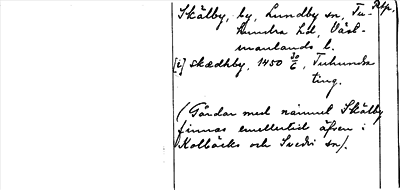 Skälby, by, Lundby sn, Tu-
hundra hd, Väst-
manlands l.
[i] skædhby, 1450 30/6, Tuhundra
ting.
(Gårdar med namnet Skälby
finnas emellertid äfven i
Kolbäcks och Svedvi sn).